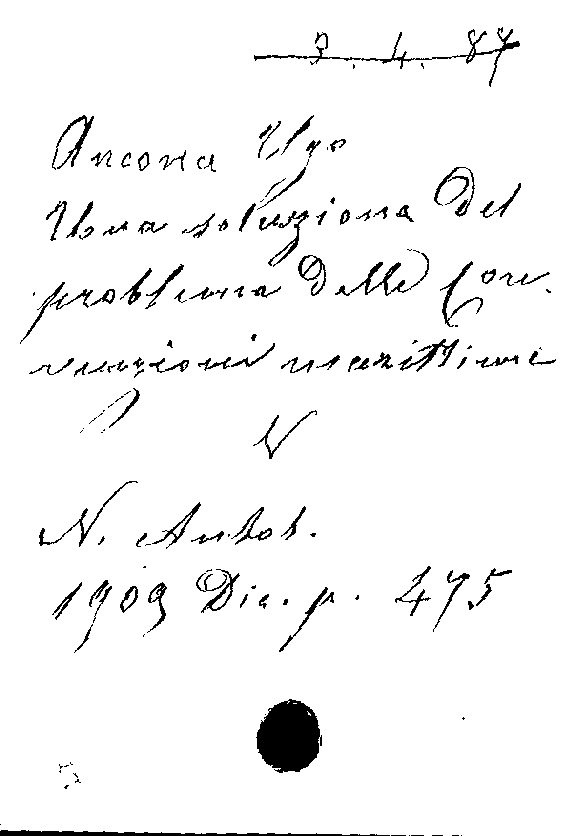 3. 4. 87
Ancona Ugo
Una soluzione del
problema delle Con-
venzioni marittime
N
N. Antol.
1909 Dic. p. 475